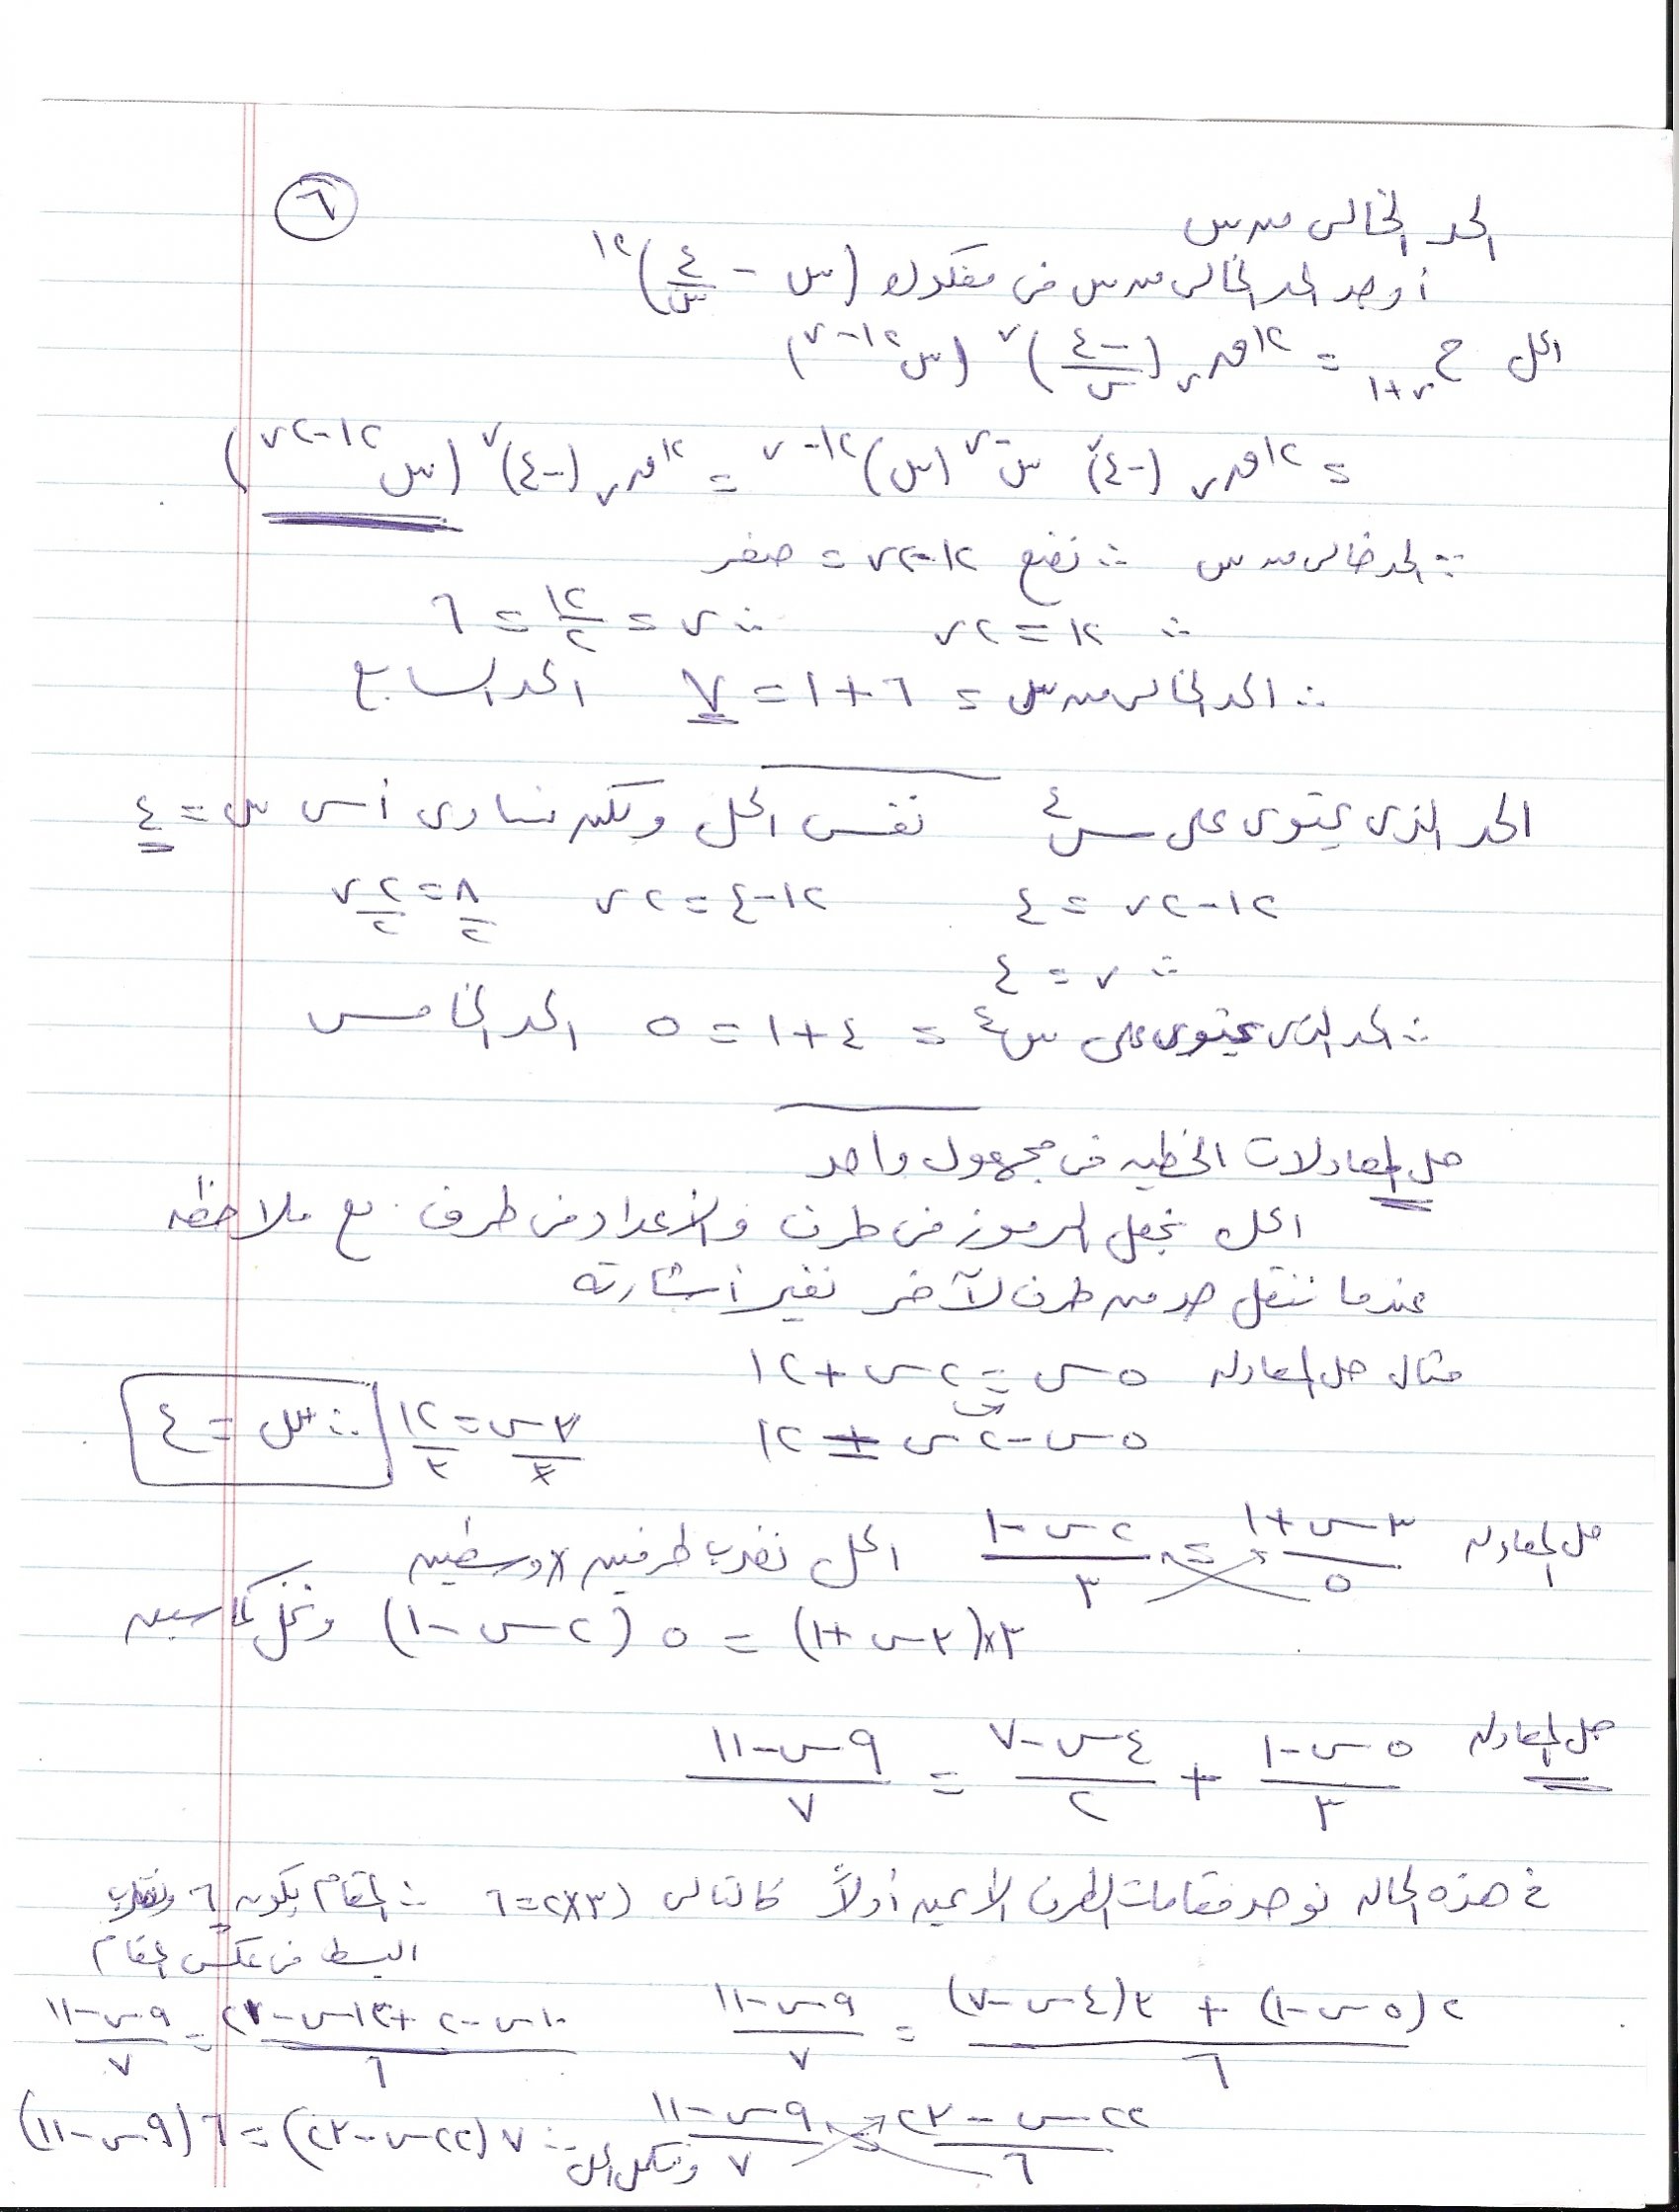 ٦
الحد الخالى من س
أوجد الحد الخالى من س فى مفكوك (س - ٤/س)^١٢
الحل ح ر+١ = ١٢ق ر (-٤/س)^ر (س^١٢-ر)
= ١٢ق ر (-٤)^ر س^-ر (س)^١٢-ر = ١٢ق ر (-٤)^ر (س^١٢-٢ر)
∵ الحد خالى من س ∴ نضع ١٢-٢ر = صفر
∴ ١٢ = ٢ر ∴ ر = ١٢/٢ = ٦
∴ الحد الخالى من س = ٦+١ = ٧ الحد السابع
الحد الذى يحتوى على س^٤ نفس الحل ولكن نساوى أس س = ٤
١٢-٢ر = ٤ ١٢-٤ = ٢ر ٨/٢ = ٢ر/٢
∴ ر = ٤
∴ الحد الذى يحتوى على س^٤ = ٤+١ = ٥ الحد الخامس
حل المعادلات الخطيه فى مجهول واحد
الحل نجعل الرموز فى طرف والأعداد فى طرف مع ملاحظه
عندما ننقل حد من طرف لآخر نغير أشارته
مثال حل المعادله ٥س = ٢س+١٢
٥س-٢س = ١٢ ٣س/٣ = ١٢/٣ ∴ س = ٤
حل المعادله ٣س+١/٥ = ٢س-١/٣ الحل نضرب طرفين × وسطين
٣×(٣س+١) = ٥(٢س-١) ونحل كما سبق
حل المعادله ٥س-١/٣ + ٤س-٧/٢ = ٩س-١١/٧
فى هذه الحاله نوحد مقامات الطرف الأيمن أولاً كالتالى (٣×٢=٦ ∴ المقام يكون ٦ ونضرب
البسط فى عكس المقام
٢(٥س-١) + ٣(٤س-٧)/٦ = ٩س-١١/٧ ١٠س-٢+١٢س-٢١/٦ = ٩س-١١/٧
٢٢س-٢٣/٦ = ٩س-١١/٧ ونكمل الحل ∴ ٧(٢٢س-٢٣) = ٦(٩س-١١)